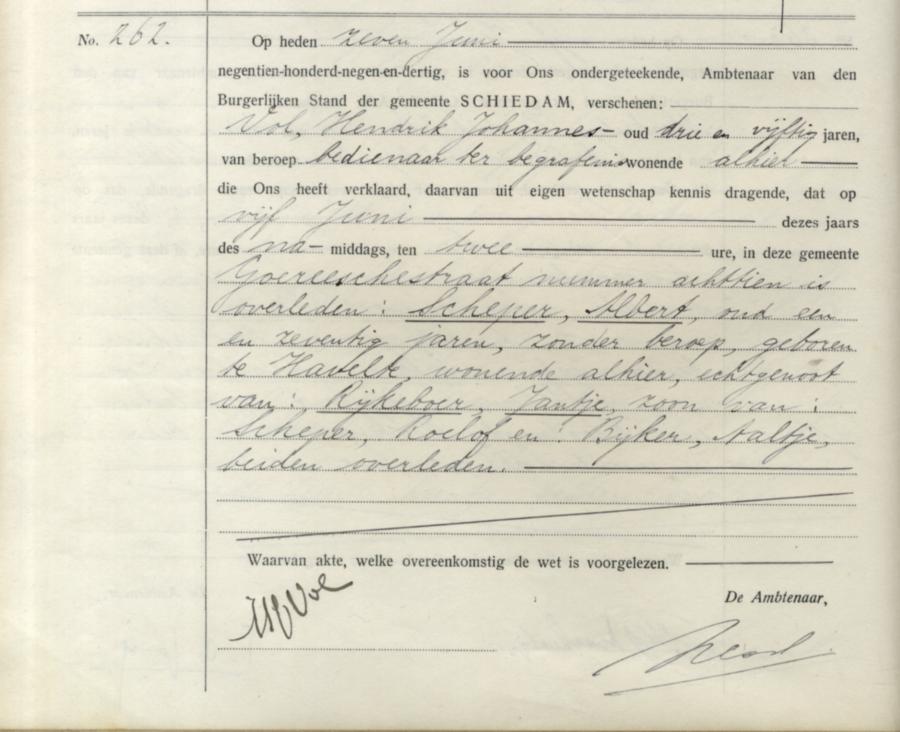 No. 262. Op heden zeven Juni
negentien-honderd-negen-en-dertig, is voor Ons ondergeteekende, Ambtenaar van den
Burgerlijken Stand der gemeente SCHIEDAM, verschenen:
Vol, Hendrik Johannes- oud drie en vijftig jaren,
van beroep bedienaar ter begrafenis wonende alhier
die Ons heeft verklaard, daarvan uit eigen wetenschap kennis dragende, dat op
vijf Juni dezes jaars
des na- middags, ten twee ure, in deze gemeente
Goereeschestraat nummer achttien is
overleden: Scheper, Albert, oud een
en zeventig jaren, zonder beroep, geboren
te Havelte, wonende alhier, echtgenoot
van: Rijkeboer, Jantje, zoon van:
Scheper, Roelof en Bijker, Aaltje,
beiden overleden.
Waarvan akte, welke overeenkomstig de wet is voorgelezen.
De Ambtenaar,
HJVol